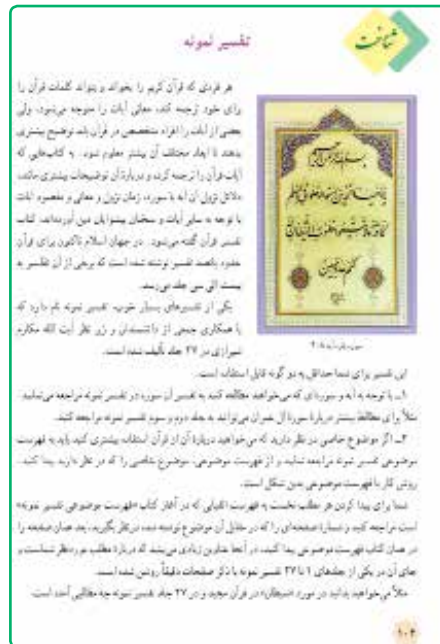 شناخت
تفسیر نمونه
هر فردی که قرآن کریم را بخواند و بتواند کلمات قرآن را
برای خود ترجمه کند، معانی آیات را متوجه می‌شود، ولی
بعضی از آیات را افراد متخصص در قرآن باید توضیح بیشتری
بدهند تا ابعاد مختلف آن بیشتر معلوم شود. به کتاب‌هایی که
آیات قرآن را ترجمه کرده و درباره‌ٔ آن توضیحات بیشتری مانند،
دلائل نزول آن آیه یا سوره، زمان نزول و معانی و مقصود آیات
با توجه به سایر آیات و سخنان پیشوایان دین آورده‌اند، کتاب
تفسیر قرآن گفته می‌شود. در جهان اسلام تاکنون برای قرآن
حدود پانصد تفسیر نوشته شده است که برخی از آن تفاسیر به
بیست الی سی جلد می‌رسد.
یکی از تفسیرهای بسیار خوب، تفسیر نمونه نام دارد که
با همکاری جمعی از دانشمندان و زیر نظر آیت الله مکارم
شیرازی در ۲۷ جلد تألیف شده است.
این تفسیر برای شما حداقل به دو گونه قابل استفاده است.
۱ـ با توجه به آیه و سوره‌ای که می‌خواهید مطالعه کنید به تفسیر آن سوره در تفسیر نمونه مراجعه می‌نمایید.
مثلاً برای مطالعهٔ بیشتر دربارهٔ سورهٔ آل عمران می‌توانید به جلد دوم و سوم تفسیر نمونه مراجعه کنید.
۲ـ اگر موضوع خاصی در نظر دارید که می‌خواهید دربارهٔ آن از قرآن استفاده بیشتری کنید باید به فهرست
موضوعی تفسیر نمونه مراجعه نمایید و از فهرست موضوعی، موضوع خاصی را که در نظر دارید پیدا کنید.
روش کار با فهرست موضوعی بدین شکل است.
شما برای پیدا کردن هر مطلب نخست به فهرست الفبایی که در آغاز کتاب «فهرست موضوعی تفسیر نمونه»
است مراجعه کنید و شماره صفحه‌ای را که در مقابل آن موضوع نوشته شده، در نظر بگیرید، بعد همان صفحه را
در همان کتاب فهرست موضوعی پیدا کنید، در آنجا عناوین زیادی می‌بینید که دربارهٔ مطلب موردنظر شماست و
جای آن در یکی از جلدهای ۱ تا ۲۷ تفسیر نمونه با ذکر صفحات دقیقاً روشن شده است.
مثلاً می‌خواهید بدانید در مورد «شیطان» در قرآن مجید و در ۲۷ جلد تفسیر نمونه چه مطالبی آمده است.
۱۰۴